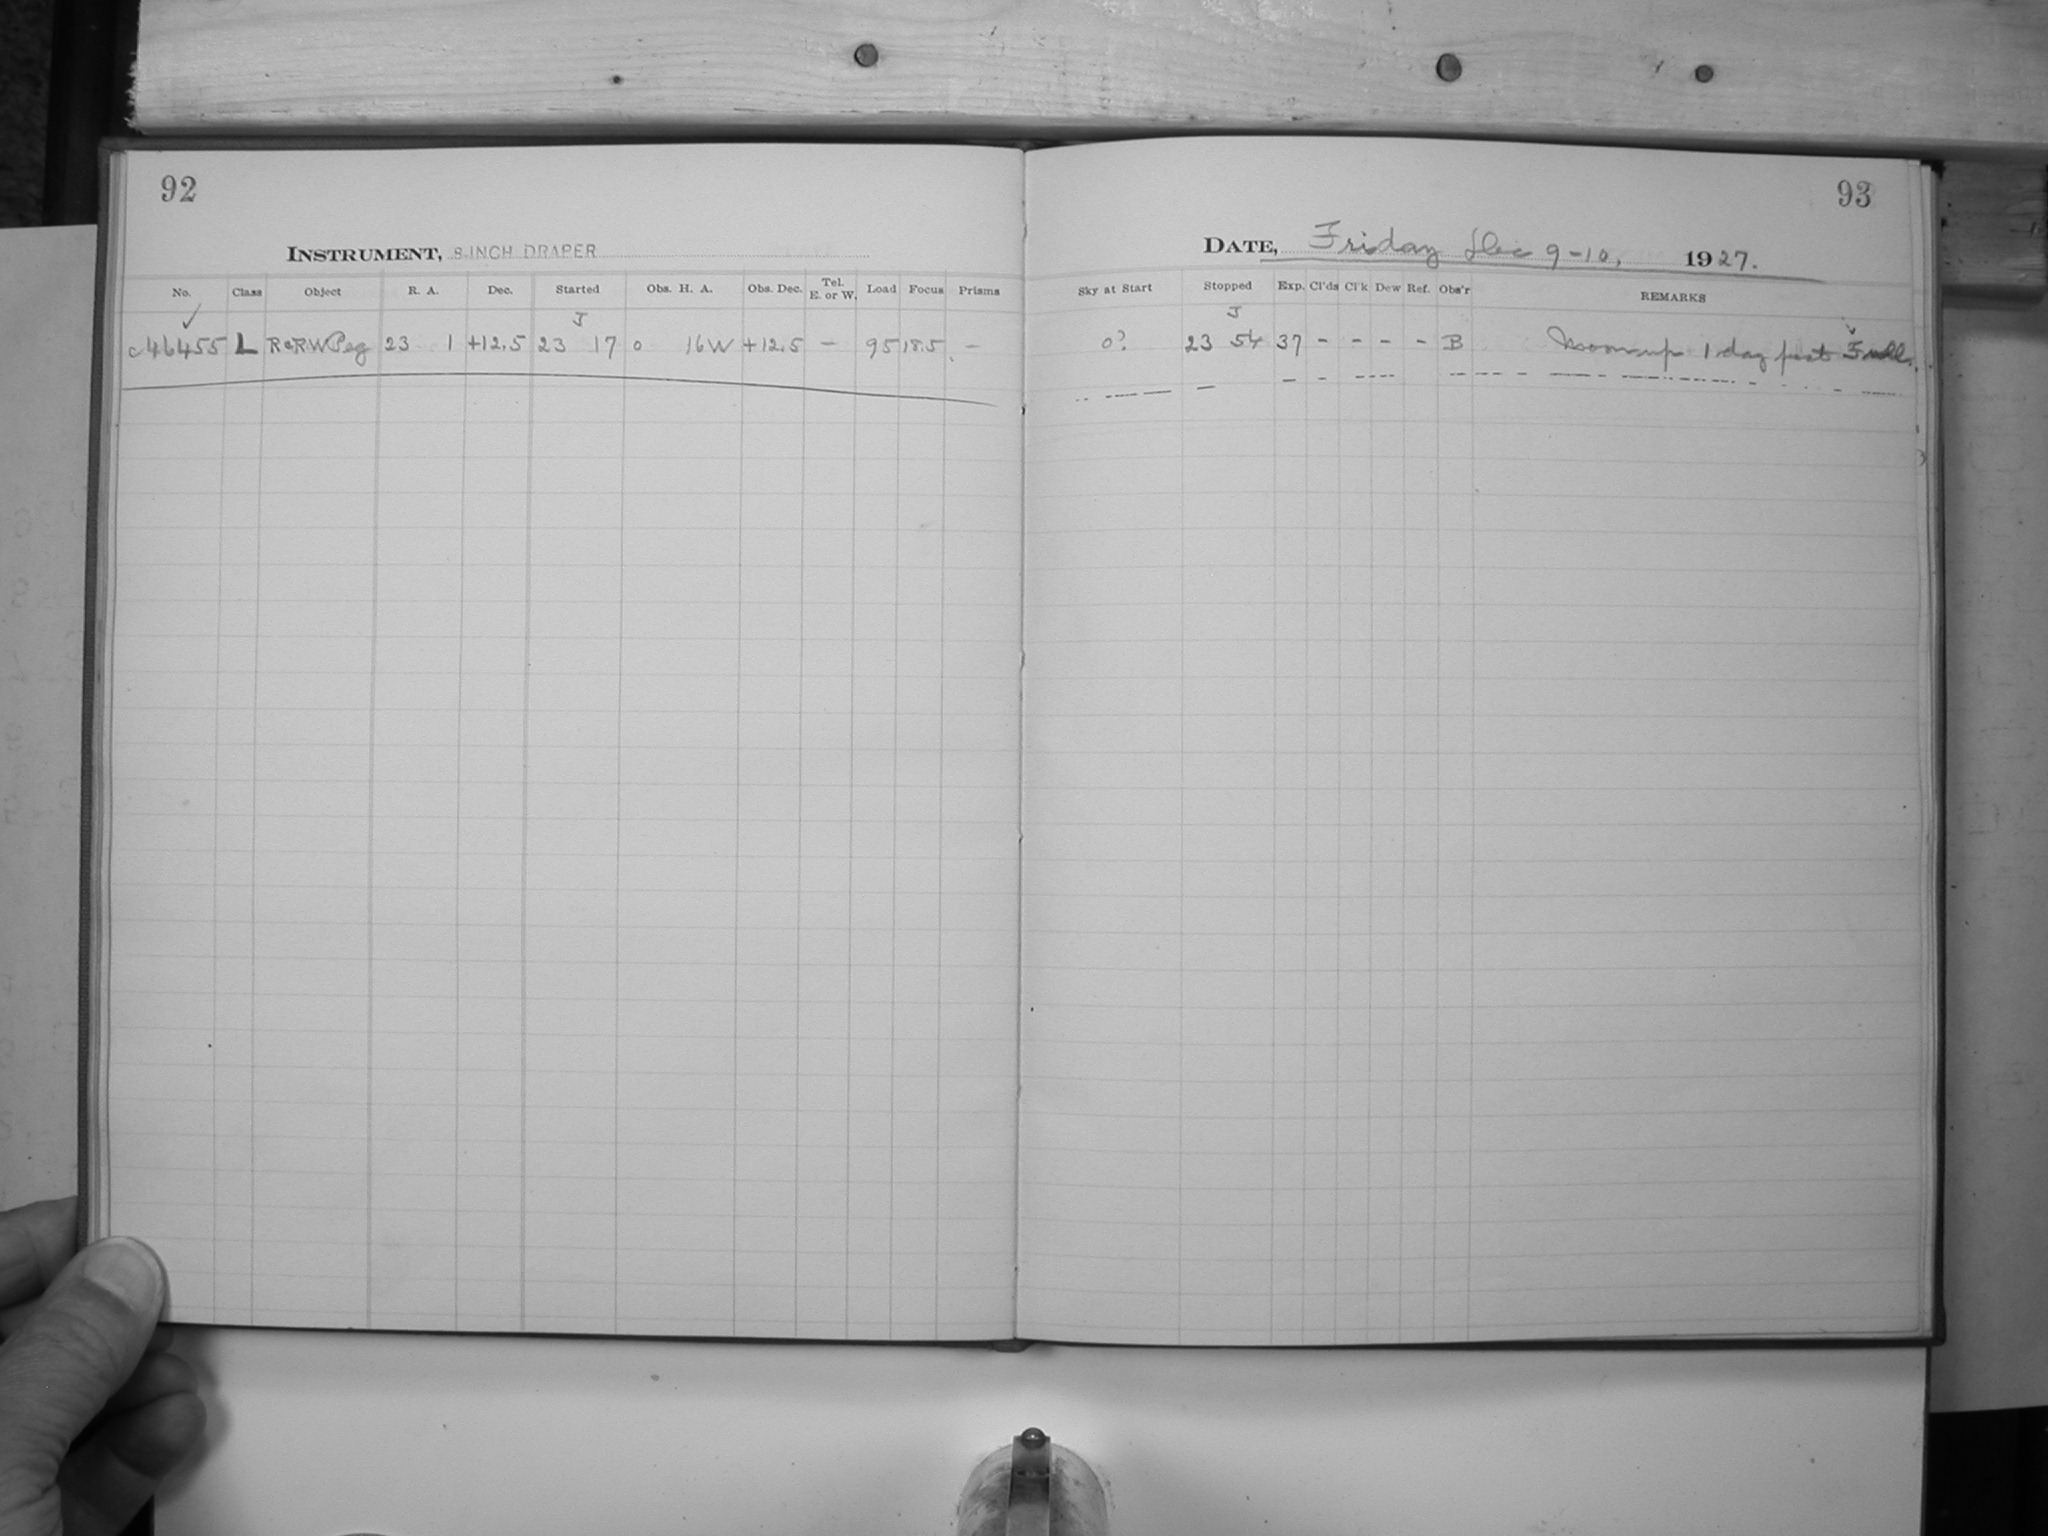 92
INSTRUMENT, 8-INCH DRAPER
No. Class Object R. A. Dec. Started Obs. H. A. Obs. Dec. Tel. E. or W. Load Focus Prisms
J
c46455 L R&RW Peg 23 1 +12.5 23 17 0 16W +12.5 – 95 18.5 –
93
DATE, Friday Dec 9-10, 1927.
Sky at Start Stopped Exp. Cl'ds Cl'k Dew Ref. Obs'r REMARKS
J
0? 23 54 37 - - - - B Moon up 1 day past Full.